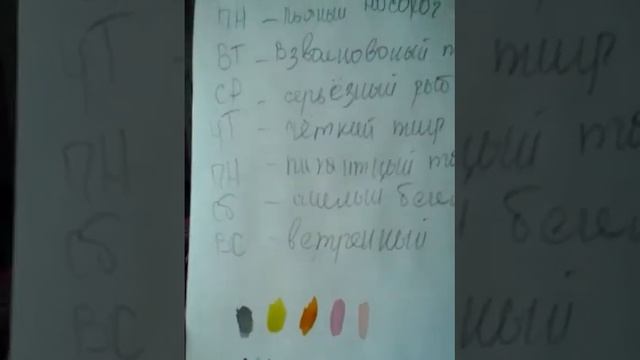 ПН - пьяный носорог
ВТ - Взволновоный т
СР - серьёзный робо
ЧТ - чёткий тигр
ПН - пикантный т
СБ - смелый бегем
ВС - ветренный